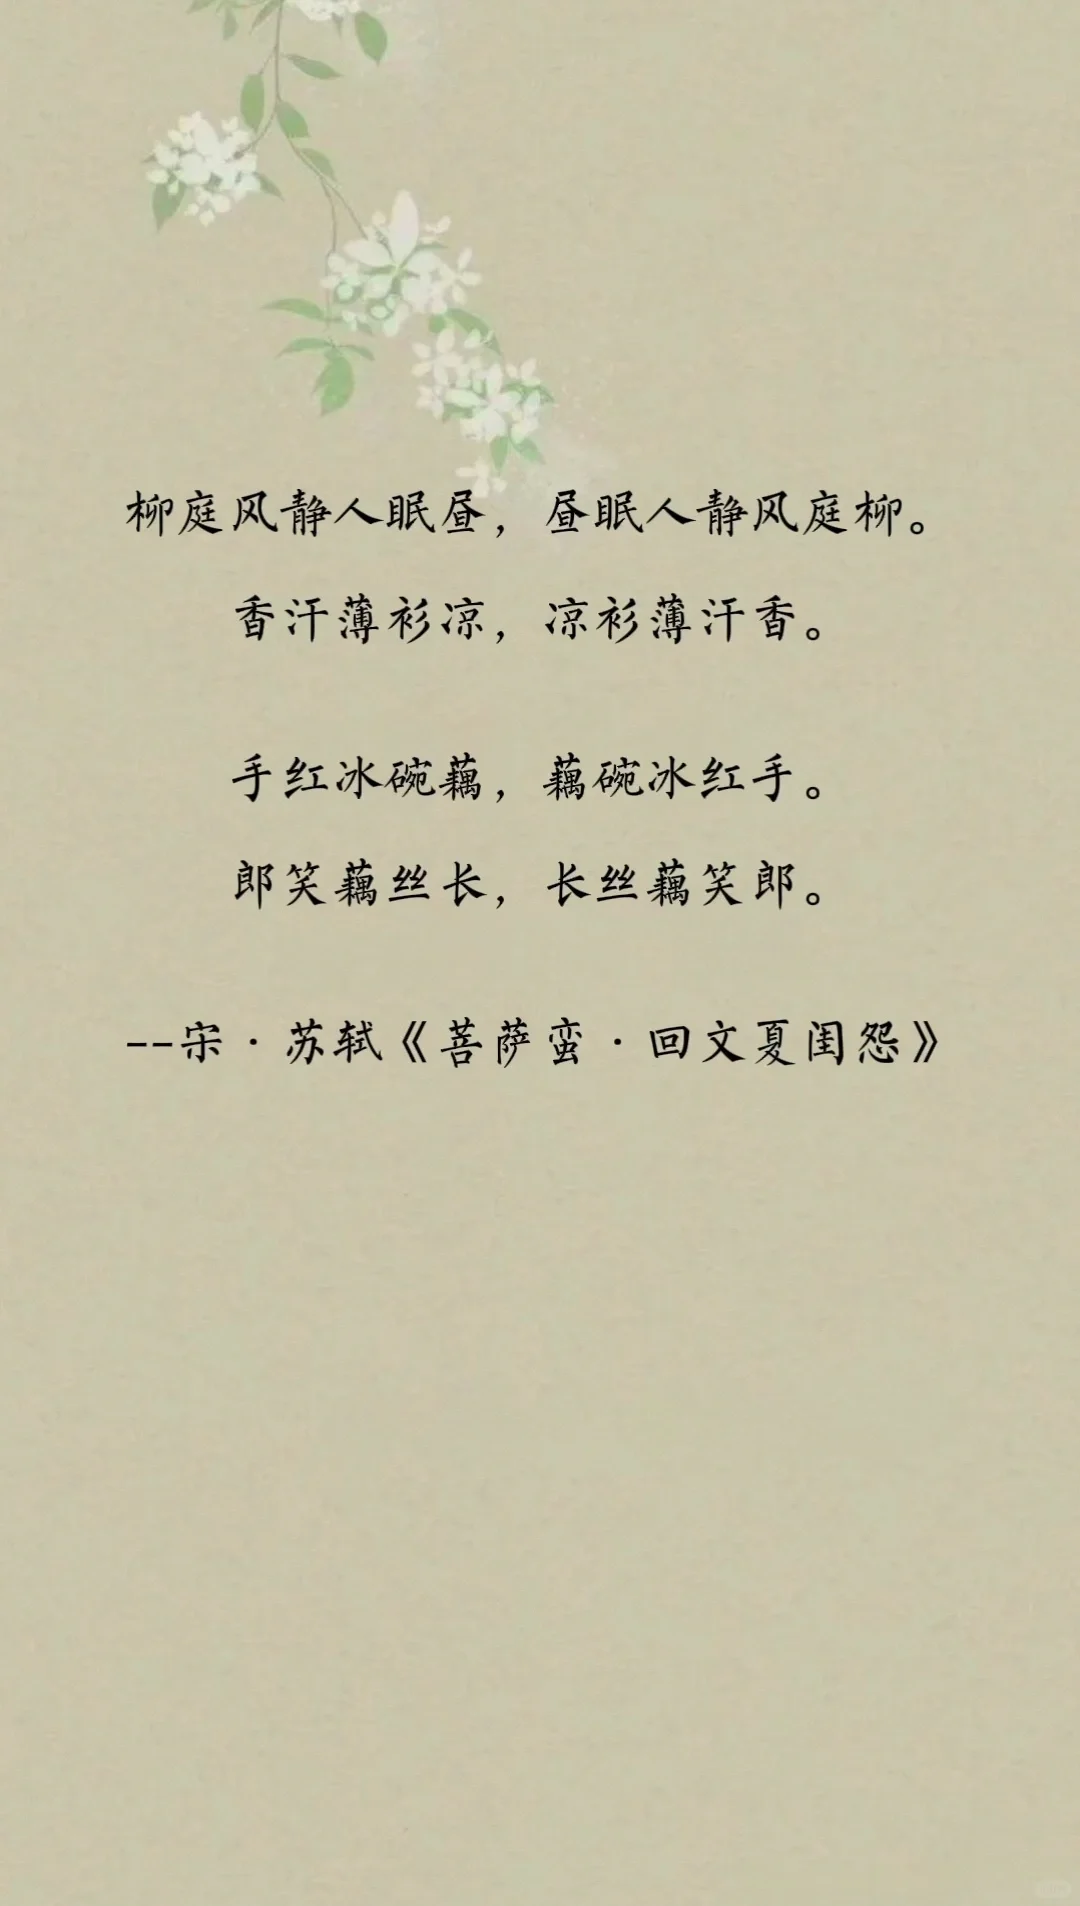 柳庭风静人眠昼，昼眠人静风庭柳。
香汗薄衫凉，凉衫薄汗香。
手红冰碗藕，藕碗冰红手。
郎笑藕丝长，长丝藕笑郎。
--宋·苏轼《菩萨蛮·回文夏闺怨》